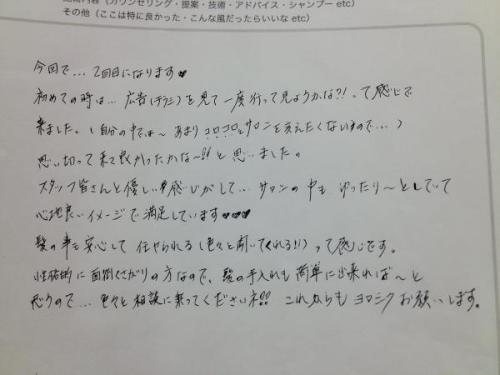 施術内容（カウンセリング・提案・技術・アドバイス・シャンプー etc）
その他（ここは特に良かった・こんな風だったらいいな etc）
今回で… 2回目になります♥
初めての時は… 広告(チラシ)を見て一度行って見ようかな?!。って感じで
来ました。(自分の中では〜 あまり コロコロとサロンを変えたくないもので…)
思い切って来て良かったかな〜!! と思いました。
スタッフ皆さんと優しい感じがして… サロンの中も ゆったり〜としていて
心地良いイメージで満足しています♥♥♥
髪の事も安心して任せられる(色々と聞いてくれる!!)って感じです。
性格的に面倒くさがりの方なので、髪の手入れも簡単に出来れば〜と
思うので… 色々と相談に乗ってくださいネ!! これからも ヨロシク お願いします。